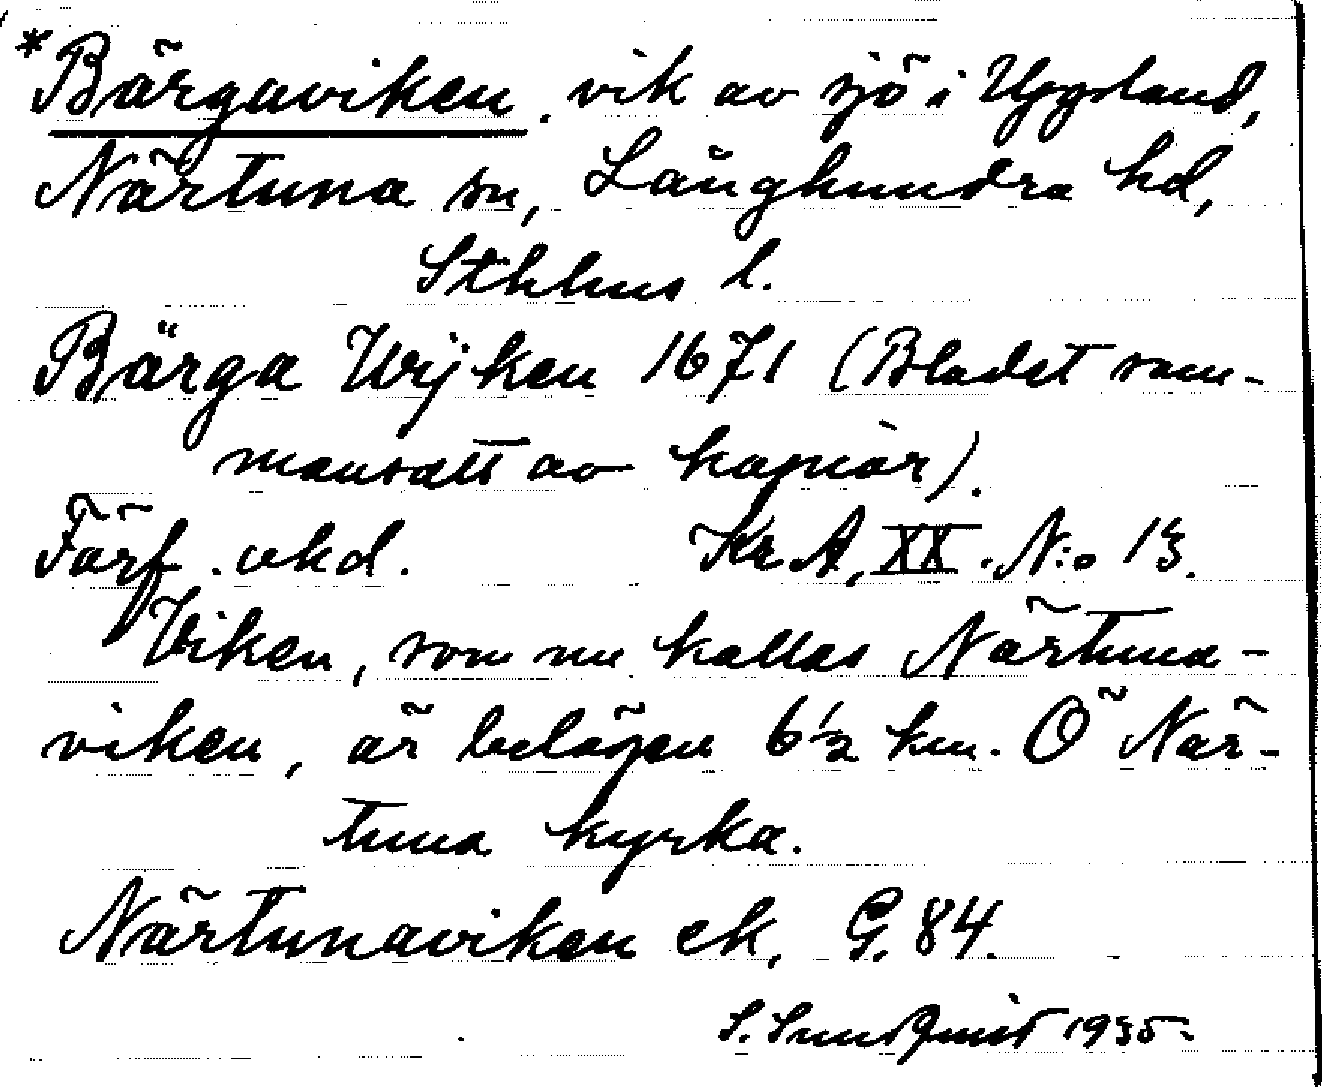 *Bärgaviken, vik av sjö i Uppland,
Närtuna sn, Långhundra hd,
Sthlms l.
Bärga Wijken 1671 (Bladet sam-
mansatt av kopior).
Förf. okd. Kr.A, XX. N:o 13.
Viken, som nu kallas Närtuna-
viken, är belägen 6 1/2 km. Ö När-
tuna kyrka.
Närtunaviken ek, G. 84.
S. Sundqvist 1935.